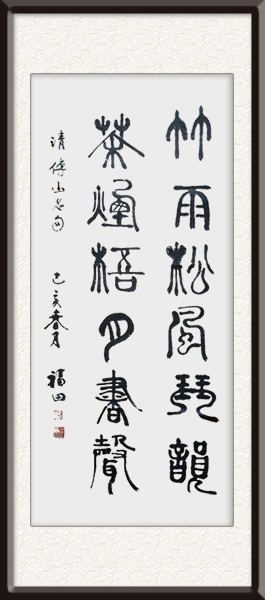 竹雨松風琴韻
茶煙梧月書聲
清傅山名句
己亥春月
福田